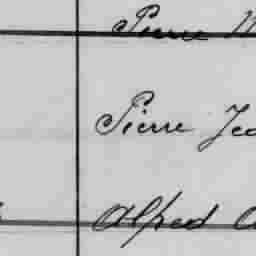 Pierre
Pierre
Alfred